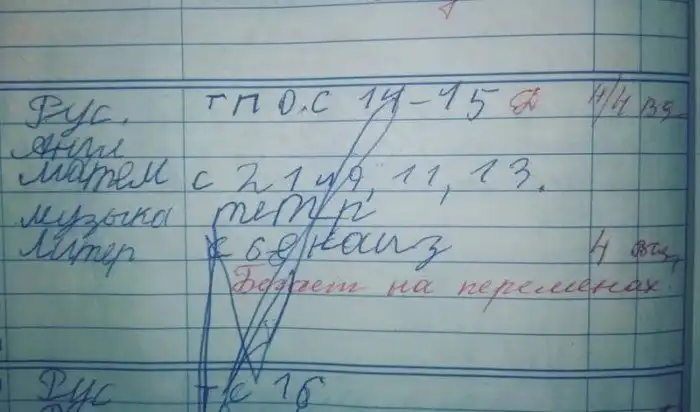 Рус. т п о.с 14-15 Д 4/4
Англ
Матем с 21 49, 11, 13.
музыка тетр
Литер с 68 наиз 4
Бегает на переменах.
Рус т с 16